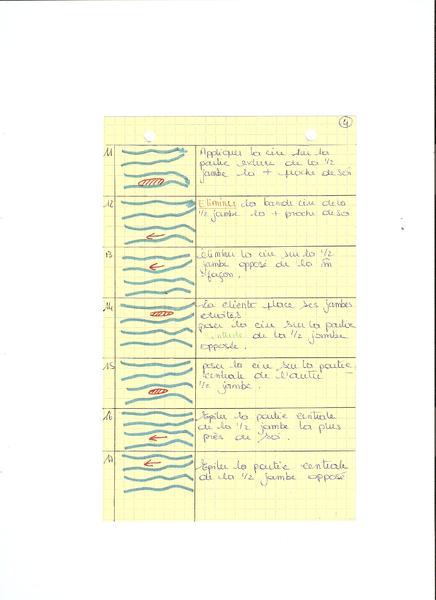 4
11 Appliquer la cire sur la
partie externe de la 1/2
jambe la + proche de soi
12 Eliminer la bande cire de la
1/2 jambe la + proche de soi
13 éliminer la cire sur la 1/2
jambe opposé de la m̄
façon.
14 La cliente place ses jambes
droites
poser la cire sur la partie
centrale de la 1/2 jambe
opposée.
15 poser la cire sur la partie
centrale de l'autre
1/2 jambe.
16 Epiler la partie centrale
de la 1/2 jambe la plus
près de soi.
17 Epiler la partie centrale
de la 1/2 jambe opposé